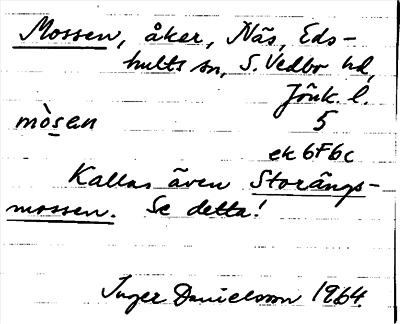 Mossen, åker, Näs, Eds-
hults sn, S. Vedbo hd,
Jönk. l.
mòsen 5
ek 6F6c
Kallas även Storängs-
mossen. Se detta!
Inger Danielsson 1964